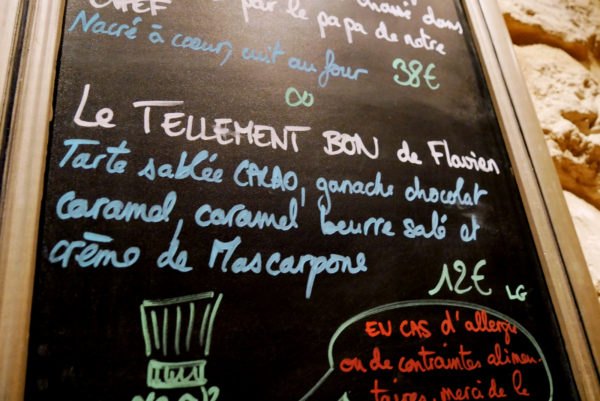 CHEF par le papa de notre
Nacré à cœur, cuit au four 38€
Le TELLEMENT BON de Flavien
Tarte sablée CACAO, ganache chocolat
caramel, caramel beurre salé et
crème de Mascarpone
12€ LG
EN CAS d'allergie
ou de contraintes alimen-
taires, merci de le